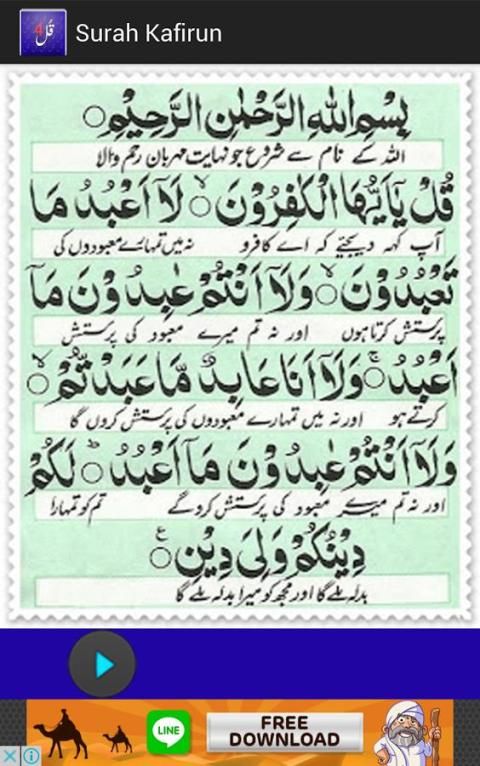 قُل 4
Surah Kafirun
بِسْمِ اللهِ الرَّحْمٰنِ الرَّحِيْمِ ○
اللہ کے نام سے شروع جو نہایت مہربان رحم والا
قُلْ يٰۤاَيُّهَا الْكٰفِرُوْنَ ○ۙ لَاۤ اَعْبُدُ مَا
آپ کہہ دیجئے کہ اے کافرو نہ میں تمہارے معبودوں کی
تَعْبُدُوْنَ ○ۙ وَلَاۤ اَنْتُمْ عٰبِدُوْنَ مَاۤ
پرستش کرتا ہوں اور نہ تم میرے معبود کی پرستش
اَعْبُدُ ○ۚ وَلَاۤ اَنَا عَابِدٌ مَّا عَبَدْتُّمْ ○ۙ
کرتے ہو اور نہ میں تمہارے معبودوں کی پرستش کروں گا
وَلَاۤ اَنْتُمْ عٰبِدُوْنَ مَاۤ اَعْبُدُ ○ؕ لَكُمْ
اور نہ تم میرے معبود کی پرستش کروگے تم کو تمہارا
دِيْنُكُمْ وَلِيَ دِيْنِ ○ع
بدلہ ملے گا اور مجھ کو میرا بدلہ ملے گا
LINE
FREE
DOWNLOAD